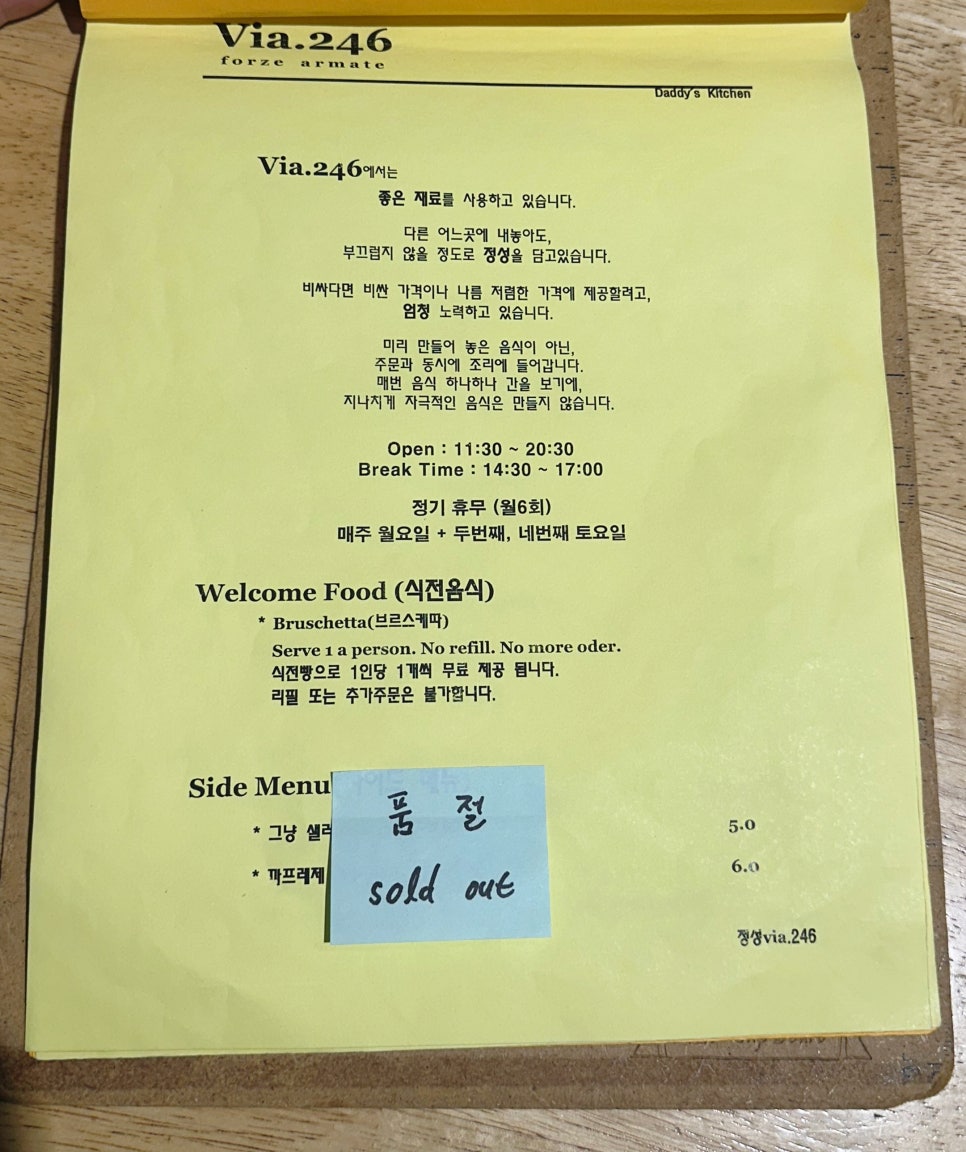 Via.246
forze armate
Daddy's Kitchen
Via.246에서는
좋은 재료를 사용하고 있습니다.
다른 어느곳에 내놓아도,
부끄럽지 않을 정도로 정성을 담고있습니다.
비싸다면 비싼 가격이나 나름 저렴한 가격에 제공할려고,
엄청 노력하고 있습니다.
미리 만들어 놓은 음식이 아닌,
주문과 동시에 조리에 들어갑니다.
매번 음식 하나하나 간을 보기에,
지나치게 자극적인 음식은 만들지 않습니다.
Open : 11:30 ~ 20:30
Break Time : 14:30 ~ 17:00
정기 휴무 (월6회)
매주 월요일 + 두번째, 네번째 토요일
Welcome Food (식전음식)
* Bruschetta(브르스케따)
Serve 1 a person. No refill. No more oder.
식전빵으로 1인당 1개씩 무료 제공 됩니다.
리필 또는 추가주문은 불가합니다.
Side Menu
품 절
* 그냥 5.0
sold out
* 까프레제 6.0
정성via.246